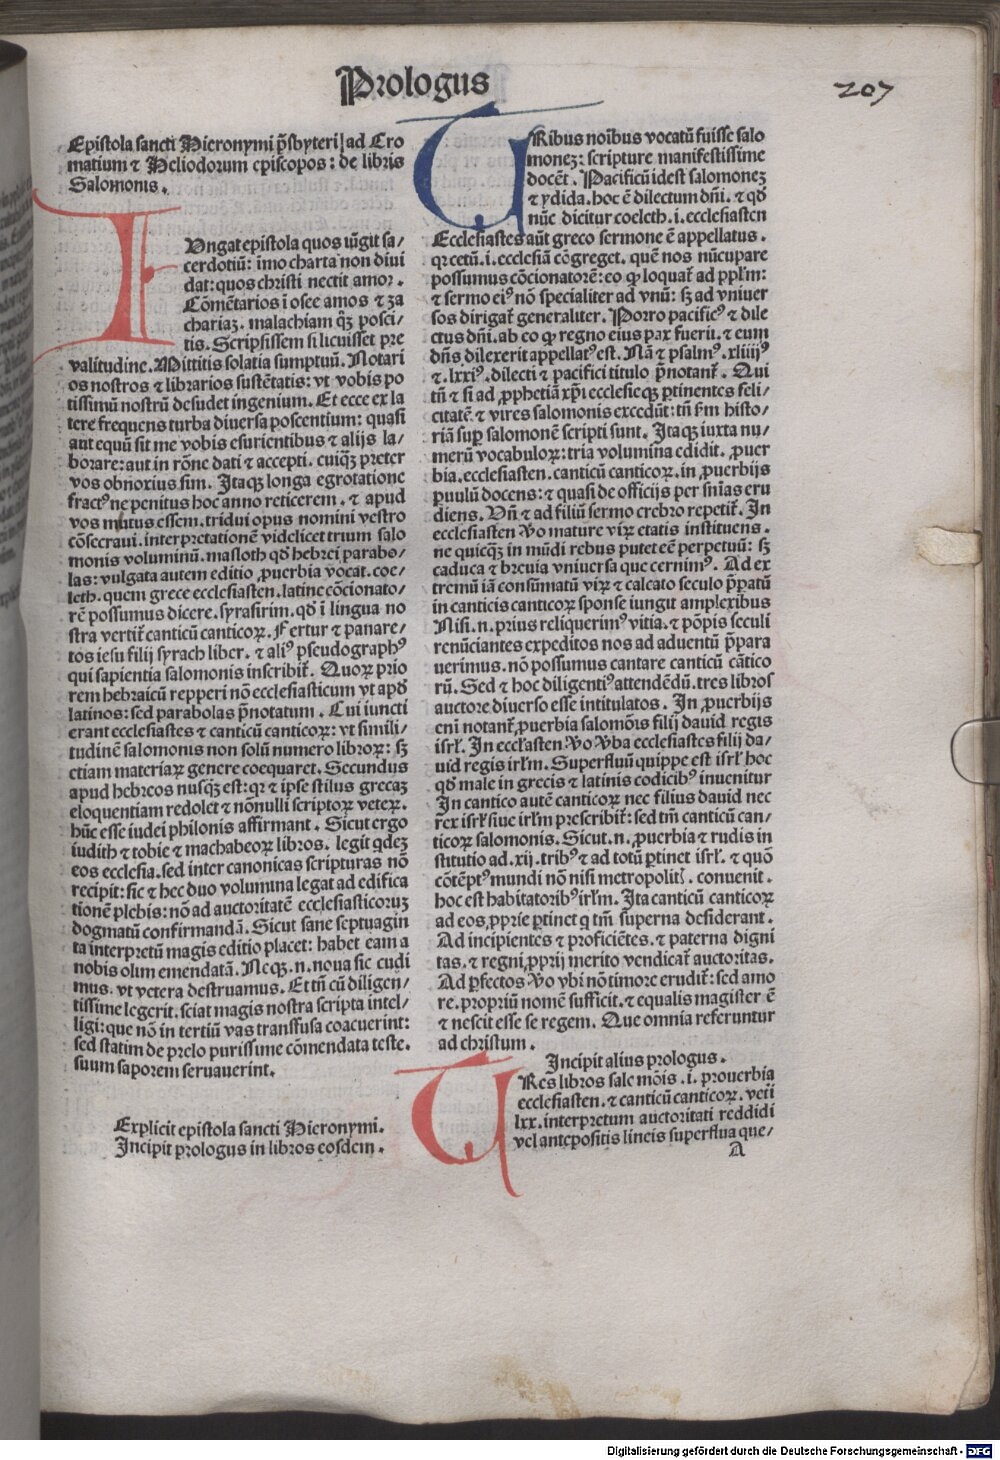 Prologus
207
Epistola sancti Hieronymi p̄sbyteri ad Cro
matium ⁊ Heliodorum episcopos: de libris
Salomonis.
IUngat epistola quos iūgit sa/
cerdotiū: imo charta non diui
dat: quos christi nectit amor.
Cōmētarios ī osee amos ⁊ za
chariaꝫ. malachiam qꝫ posci/
tis. Scripsissem si licuisset pre
valitudine. Mittitis solatia sumptuū. Notari
os nostros ⁊ librarios sustētatis: vt vobis po
tissimū nostrū desudet ingenium. Et ecce ex la
tere frequens turba diuersa poscentium: quasi
aut equū sit me vobis esurientibus ⁊ alijs la/
borare: aut in rōne dati ⁊ accepti. cuiqꝫ preter
vos obnoxius sim. Itaqꝫ longa egrotatione
fractꝰ ne penitus hoc anno reticerem. ⁊ apud
vos mutus essem. tridui opus nomini vestro
cōsecraui. interpretationē videlicet trium salo
monis voluminū. masloth qd̄ hebrei parabo/
las: vulgata autem editio ꝓuerbia vocat. coe/
leth. quem grece ecclesiasten. latine cōcionato/
rē possumus dicere. syrasirim. qd̄ ī lingua no
stra vertit̄ canticū canticoꝝ. Fertur ⁊ panare/
tos iesu filij syrach liber. ⁊ aliꝰ pseudographꝰ
qui sapientia salomonis inscribit̄. Quoꝝ prio
rem hebraicū repperi nō ecclesiasticum vt apd̄
latinos: sed parabolas p̄notatum. Cui iuncti
erant ecclesiastes ⁊ canticū canticoꝝ: vt simili/
tudinē salomonis non solū numero libroꝝ: sꝫ
etiam materiaꝝ genere coequaret. Secundus
apud hebreos nusqꝫ est: qꝛ ⁊ ipse stilus grecaꝫ
eloquentiam redolet ⁊ nōnulli scriptoꝝ veteꝝ.
hūc esse iudei philonis affirmant. Sicut ergo
iudith ⁊ tobie ⁊ machabeoꝝ libros. legit qdeꝫ
eos ecclesia. sed inter canonicas scripturas nō
recipit: sic ⁊ hec duo volumina legat ad edifica
tionē plebis: nō ad auctoritatē ecclesiasticoruꝫ
dogmatū confirmandā. Sicut sane septuagin
ta interpretū magis editio placet: habet eam a
nobis olim emendatā. Neqꝫ .n. noua sic cudi
mus. vt vetera destruamus. Et tn̄ cū diligen/
tissime legerit. sciat magis nostra scripta intel/
ligi: que nō in tertiū vas transfusa coacuerint:
sed statim de prelo purissime cōmendata teste.
suum saporem seruauerint.
Explicit epistola sancti Hieronymi.
Incipit prologus in libros eosdem.
TRibus noībus vocatū fuisse salo
moneꝫ: scripture manifestissime
docēt. Pacificū idest salomoneꝫ
⁊ ydida. hoc ē dilectum dn̄i. ⁊ qd̄
nūc dicitur coeleth .i. ecclesiasten
Ecclesiastes aūt greco sermone ē appellatus.
qꝛ cetū .i. ecclesiā cōgreget. quē nos nūcupare
possumus cōcionatorē: eo ꝙ loquat̄ ad ppl̄m:
⁊ sermo eiꝰ nō specialiter ad vnū: sꝫ ad vniuer
sos dirigat̄ generaliter. Porro pacificꝰ ⁊ dile
ctus dn̄i. ab eo ꝙ regno eius pax fuerit. ⁊ eum
dn̄s dilexerit appellatꝰ est. Nā ⁊ psalmꝰ .xliiijꝰ
⁊ .lxxiꝰ. dilecti ⁊ pacifici titulo p̄notant̄. Qui
tn̄ ⁊ si ad ꝓphetiā xp̄i ecclesieqꝫ ꝑtinentes feli/
citatē ⁊ vires salomonis excedūt: tn̄ ẜm histo/
riā suꝑ salomonē scripti sunt. Itaqꝫ iuxta nu/
merū vocabuloꝝ: tria volumina edidit. ꝓuer
bia. ecclesiasten. canticū canticoꝝ. in ꝓuerbijs
paruulū docens: ⁊ quasi de officijs per sn̄ias eru
diens. Vn̄ ⁊ ad filiū sermo crebro repetit̄. In
ecclesiasten ꝟo mature viꝝ etatis instituens.
ne quicqꝫ in mūdi rebus putet eē perpetuū: sꝫ
caduca ⁊ breuia vniuersa que cernimꝰ. Ad ex
tremū iā consūmatū viꝝ ⁊ calcato seculo p̄patū
in canticis canticoꝝ sponse iungit amplexibus
Nisi .n. prius reliquerimꝰ vitia. ⁊ pōpis seculi
renūciantes expeditos nos ad aduentū p̄para
uerimus. nō possumus cantare canticū cātico
rū. Sed ⁊ hoc diligentiꝰ attendēdū. tres libros
auctore diuerso esse intitulatos. In ꝓuerbijs
enī notant̄ ꝓuerbia salomōis filij dauid regis
isrl̄. In eccl̄asten ꝟo ꝟba ecclesiastes filij da/
uid regis irl̄m. Superfluū quippe est isrl̄ hoc
qd̄ male in grecis ⁊ latinis codicibꝰ inuenitur
In cantico autē canticoꝝ nec filius dauid nec
rex isrl̄ siue irl̄m prescribit̄: sed tm̄ canticū can/
ticoꝝ salomonis. Sicut .n. ꝓuerbia ⁊ rudis in
stitutio ad .xij. tribꝰ ⁊ ad totū ꝑtinet isrl̄. ⁊ quō
cōtēptꝰ mundi nō nisi metropolit̄. conuenit.
hoc est habitatoribꝰ irl̄m. Ita canticū canticoꝝ
ad eos ꝓprie ꝑtinet q tm̄ superna desiderant.
Ad incipientes ⁊ proficiētes. ⁊ paterna digni
tas. ⁊ regni ꝓprij merito vendicat̄ auctoritas.
Ad ꝑfectos ꝟo vbi nō timore erudit̄: sed amo
re. propriū nomē sufficit. ⁊ equalis magister ē
⁊ nescit esse se regem. Que omnia referuntur
ad christum.
Incipit alius prologus.
TRes libros salomōis .i. prouerbia
ecclesiasten. ⁊ canticū canticoꝝ. veti
lxx. interpretum auctoritati reddidi
vel antepositis lineis superflua que/
A
Digitalisierung gefördert durch die Deutsche Forschungsgemeinschaft - DFG